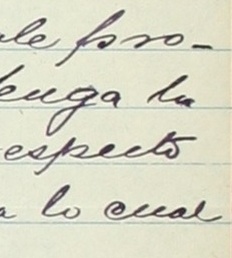 ble pro-
tenga la
respecto
a lo cual